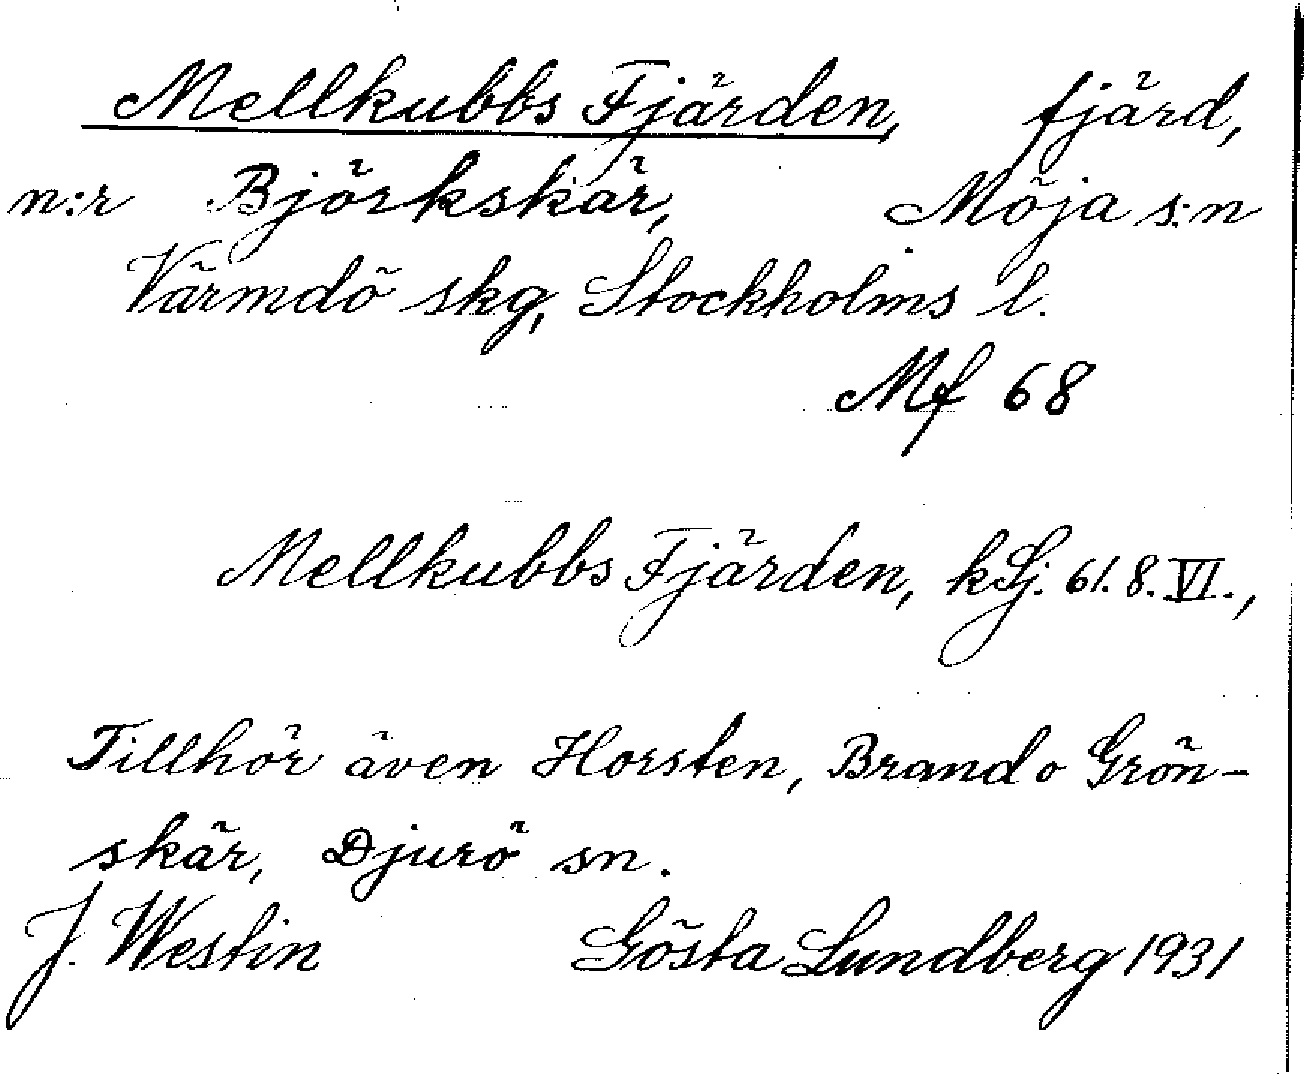 Mellkubbs Fjärden, fjärd,
n:r Björkskär, Möja s:n
Värmdö skg, Stockholms l.
Mf 68
Mellkubbs Fjärden, kSj. 61.8.VI.,
Tillhör även Horsten, Brand o Grön-
skär, Djurö sn.
J. Westin Gösta Lundberg 1931